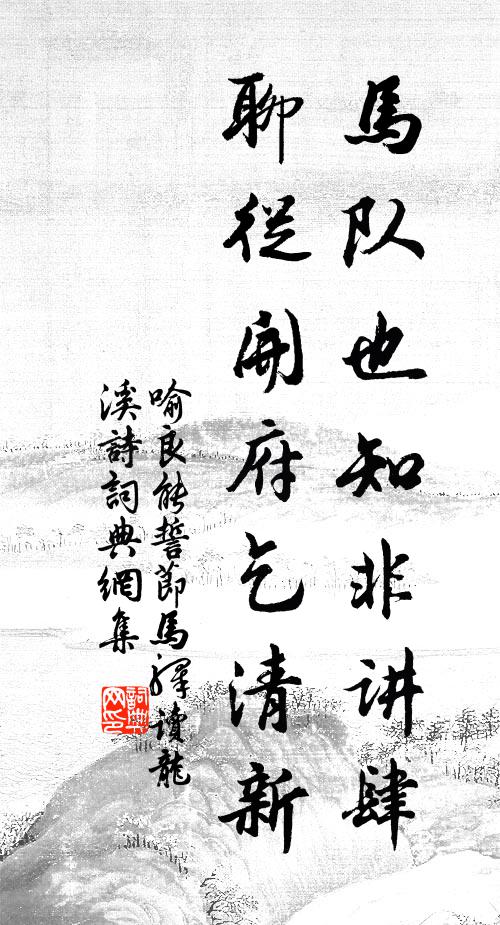 馬队也知非讲肆
聊從開府乞清新
喻良能誓節馬驛讀龍
溪詩詞典網集
詞典
网印